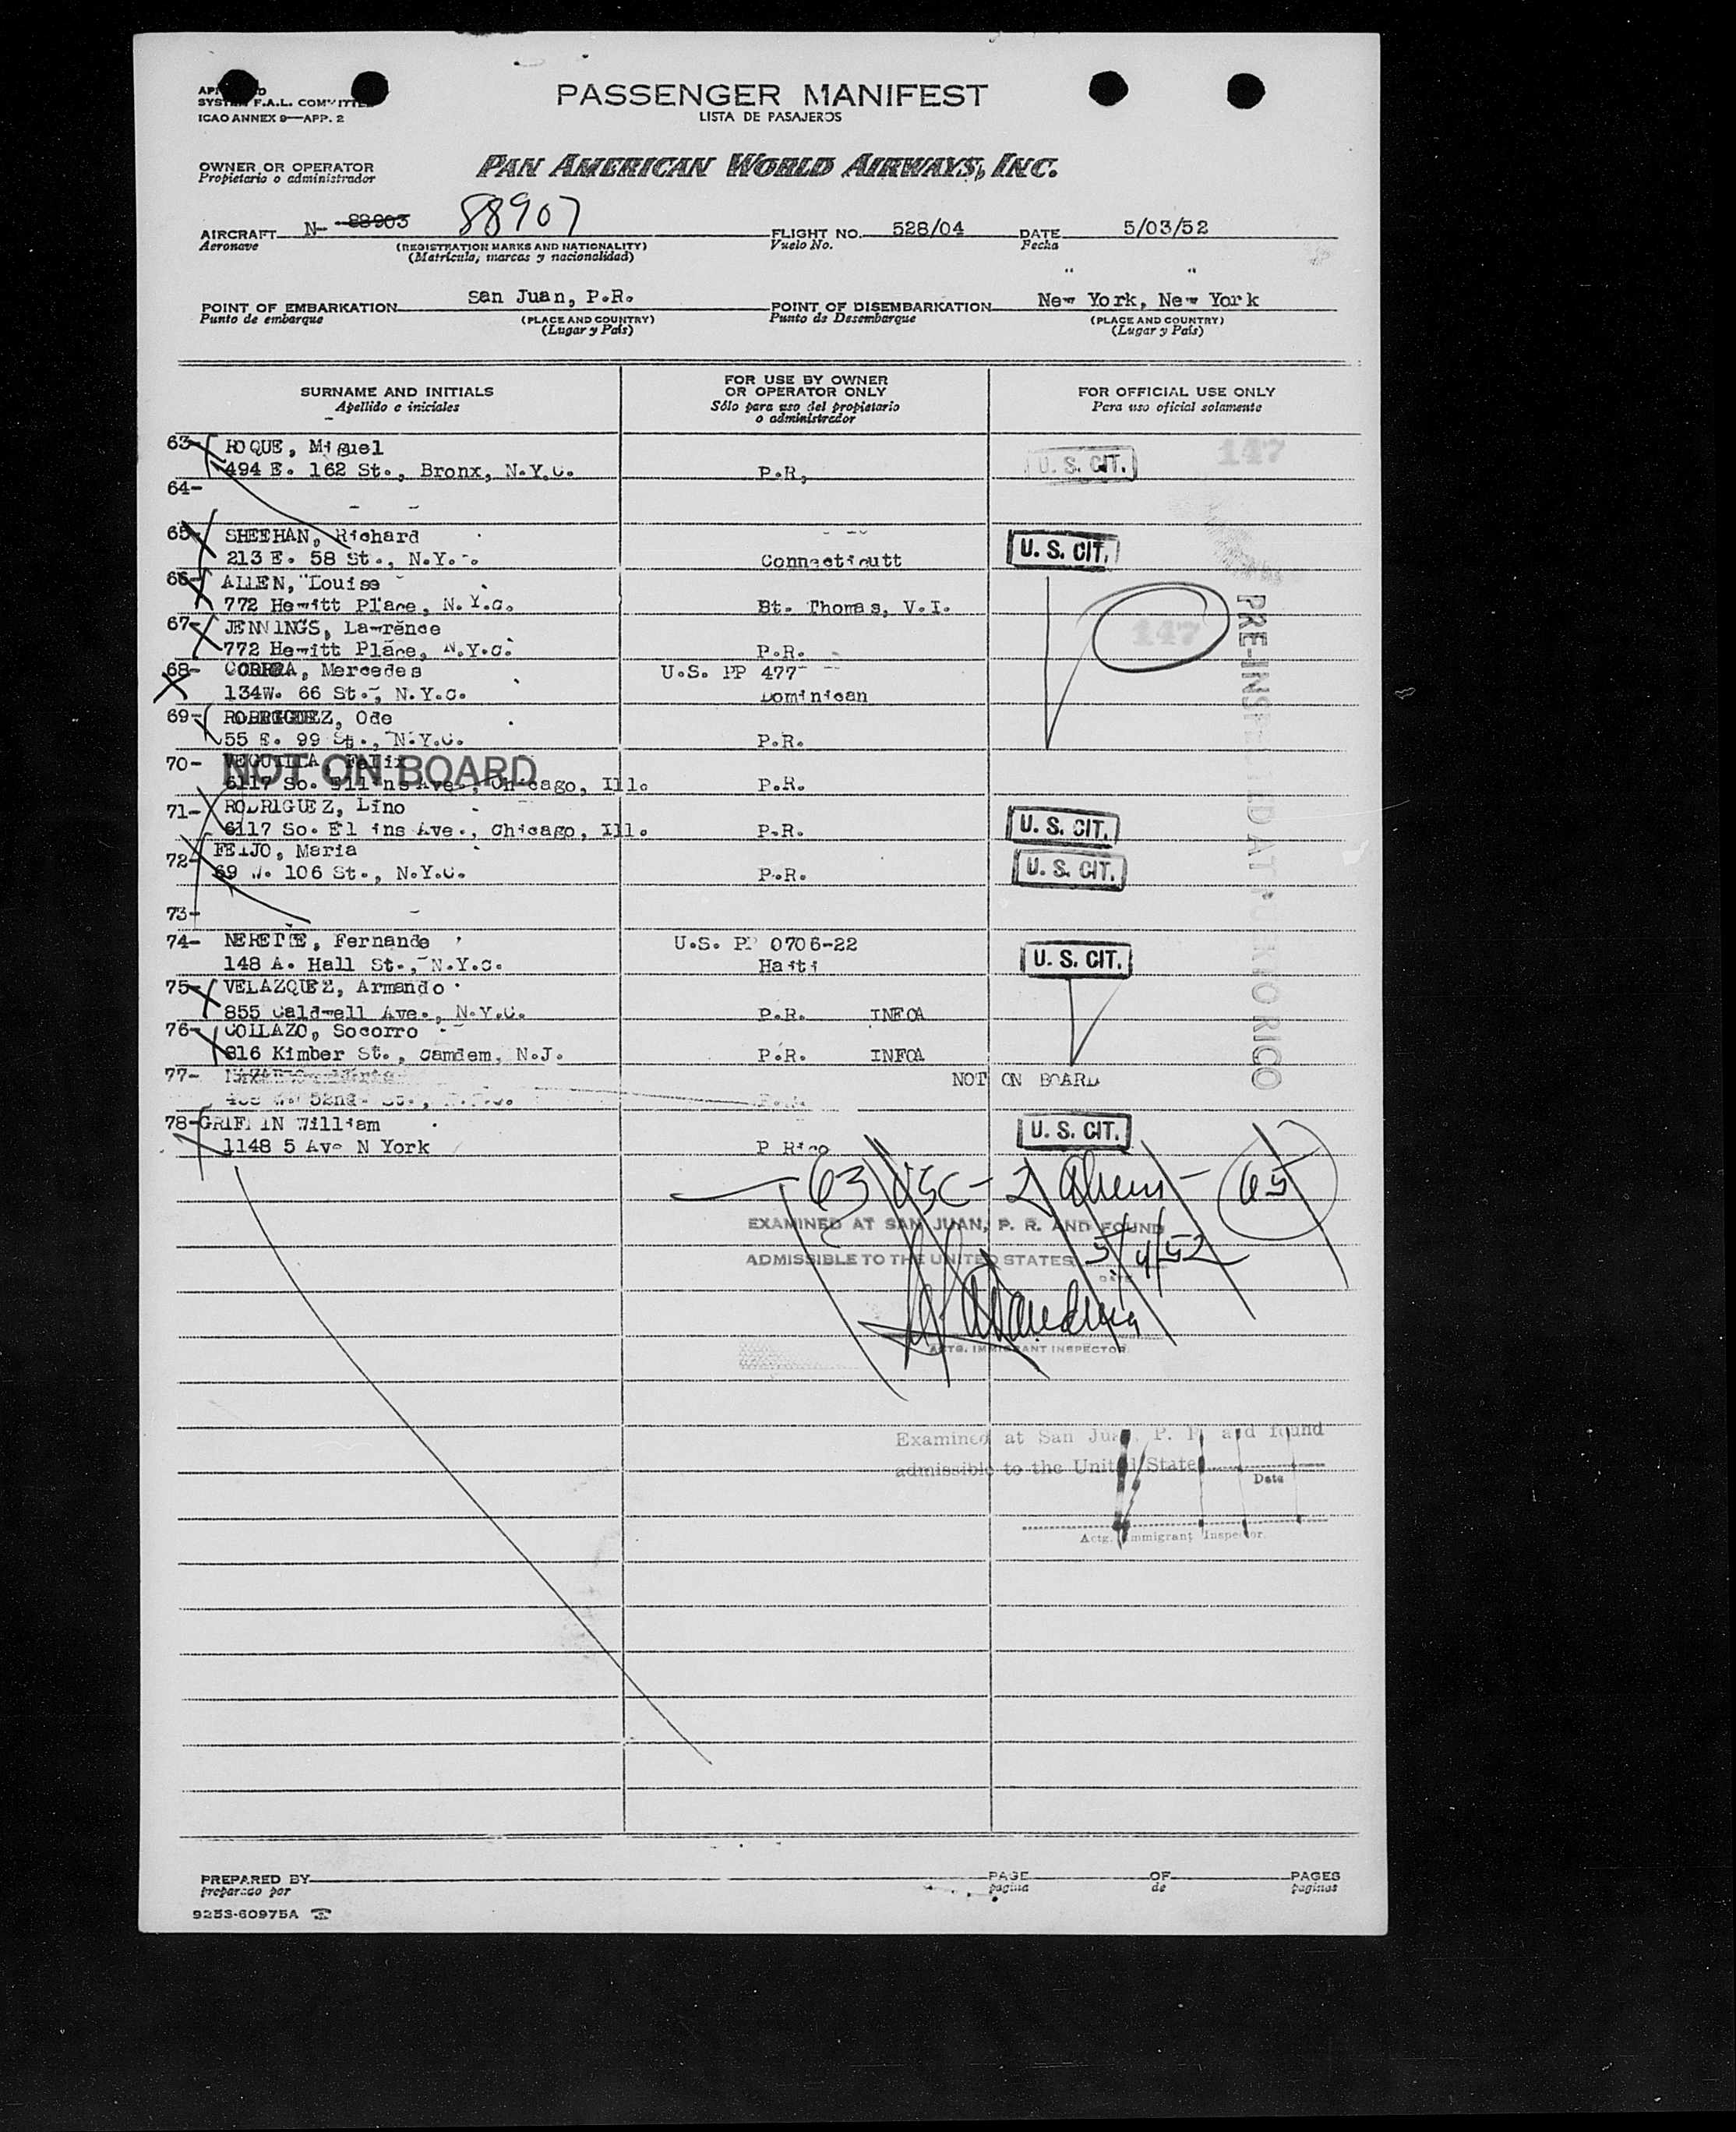 PASSENGER MANIFEST
LISTA DE PASAJEROS
SYSTEM F.A.L. COMMITTEE
ICAO ANNEX 9—APP. 2
OWNER OR OPERATOR
Propietario o administrador
PAN AMERICAN WORLD AIRWAYS, INC.
AIRCRAFT N- 88903 88907 FLIGHT NO. 528/04 DATE 5/03/52
Aeronave (REGISTRATION MARKS AND NATIONALITY) Vuelo No. Fecha
(Matrícula, marcas y nacionalidad)
" "
POINT OF EMBARKATION San Juan, P.R. POINT OF DISEMBARKATION New York, New York
Punto de embarque (PLACE AND COUNTRY) Punto de Desembarque (PLACE AND COUNTRY)
(Lugar y País) (Lugar y País)
SURNAME AND INITIALS FOR USE BY OWNER OR OPERATOR ONLY FOR OFFICIAL USE ONLY
Apellido e iniciales Sólo para uso del propietario o administrador Para uso oficial solamente
63- ROQUE, Miguel 147
494 E. 162 St., Bronx, N.Y.C. P.R, U. S. CIT.
64-
65- SHEEHAN, Richard
213 E. 58 St., N.Y. Connecticutt U. S. CIT.
66- ALLEN, Louise
772 Hewitt Place, N.Y.C. St. Thomas, V.I.
67- JENNINGS, Lawrence 147
772 Hewitt Place, N.Y.C. P.R.
68- Mercedes U.S. PP 477
134W. 66 St., N.Y.C. Dominican
69- RODRIGUEZ, Ode
55 E. 99 St., N.Y.C. P.R.
70- Felix
NOT ON BOARD
6117 So. Ave., Chicago, Ill. P.R.
71- RODRIGUEZ, Lino
6117 So. El ins Ave., Chicago, Ill. P.R. U. S. CIT.
72- FEIJO, Maria
69 W. 106 St., N.Y.C. P.R. U. S. CIT.
73-
74- NERETTE, Fernande U.S. PP 0706-22
148 A. Hall St., N.Y.C. Haiti U. S. CIT.
75- VELAZQUEZ, Armando
855 Caldwell Ave., N.Y.C. P.R. INFOA
76- COLLAZO, Socorro
816 Kimber St., Camdem, N.J. P.R. INFOA
77- NOT ON BOARD
52nd St.,
78- GRIFFIN William
1148 5 Ave N York P Rico U. S. CIT.
PRE-INSPECTED AT PUERTO RICO
63 USC - 2 Aliens - 65
EXAMINED AT SAN JUAN, P. R. AND FOUND
ADMISSIBLE TO THE UNITED STATES 5/4/52
DATE
ACTG. IMMIGRANT INSPECTOR
Examined at San Juan, P. R. and found
admissible to the United States
Date
Actg. Immigrant Inspector.
PREPARED BY PAGE OF PAGES
preparado por pagina de paginas
9253-60975A